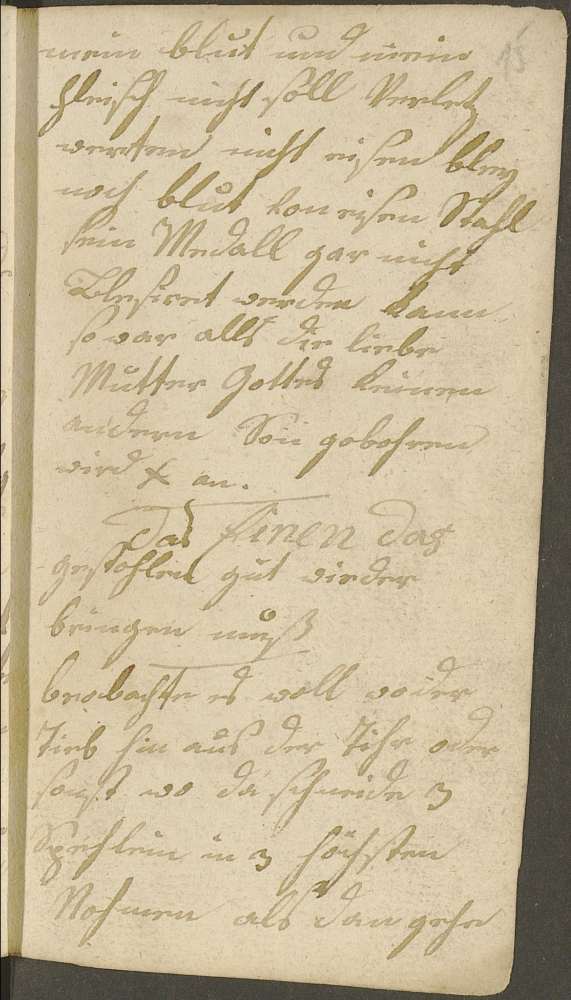 mein blut und mein
fleisch nicht soll Verletz
werden nicht eisen bley
noch blut kon eisen Stahl
kein Medall gar nicht
Blesiret werden kann
so war alls die liebe
Mutter Gottes keinen
andern Son gebohren
wird x an.
Das Einen das
gestohlen gut wieder
bringen muß
beobachte es woll wo der
Tieb hin aus der Tihr oder
sonst wo da schneide 3
Spehlein in 3 höchsten
Nahmen als dan gehe